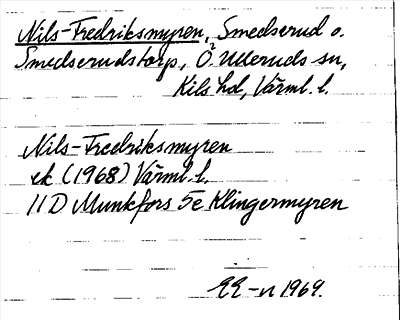 Nils-Fredriksmyren, Smedserud o.
Smedserudstorp, Ö. Ulleruds sn,
Kils hd, Värml. l.
Nils-Fredriksmyren
ek (1968) Värml. l.
11D Munkfors 5e Klingermyren
EE-n 1969.